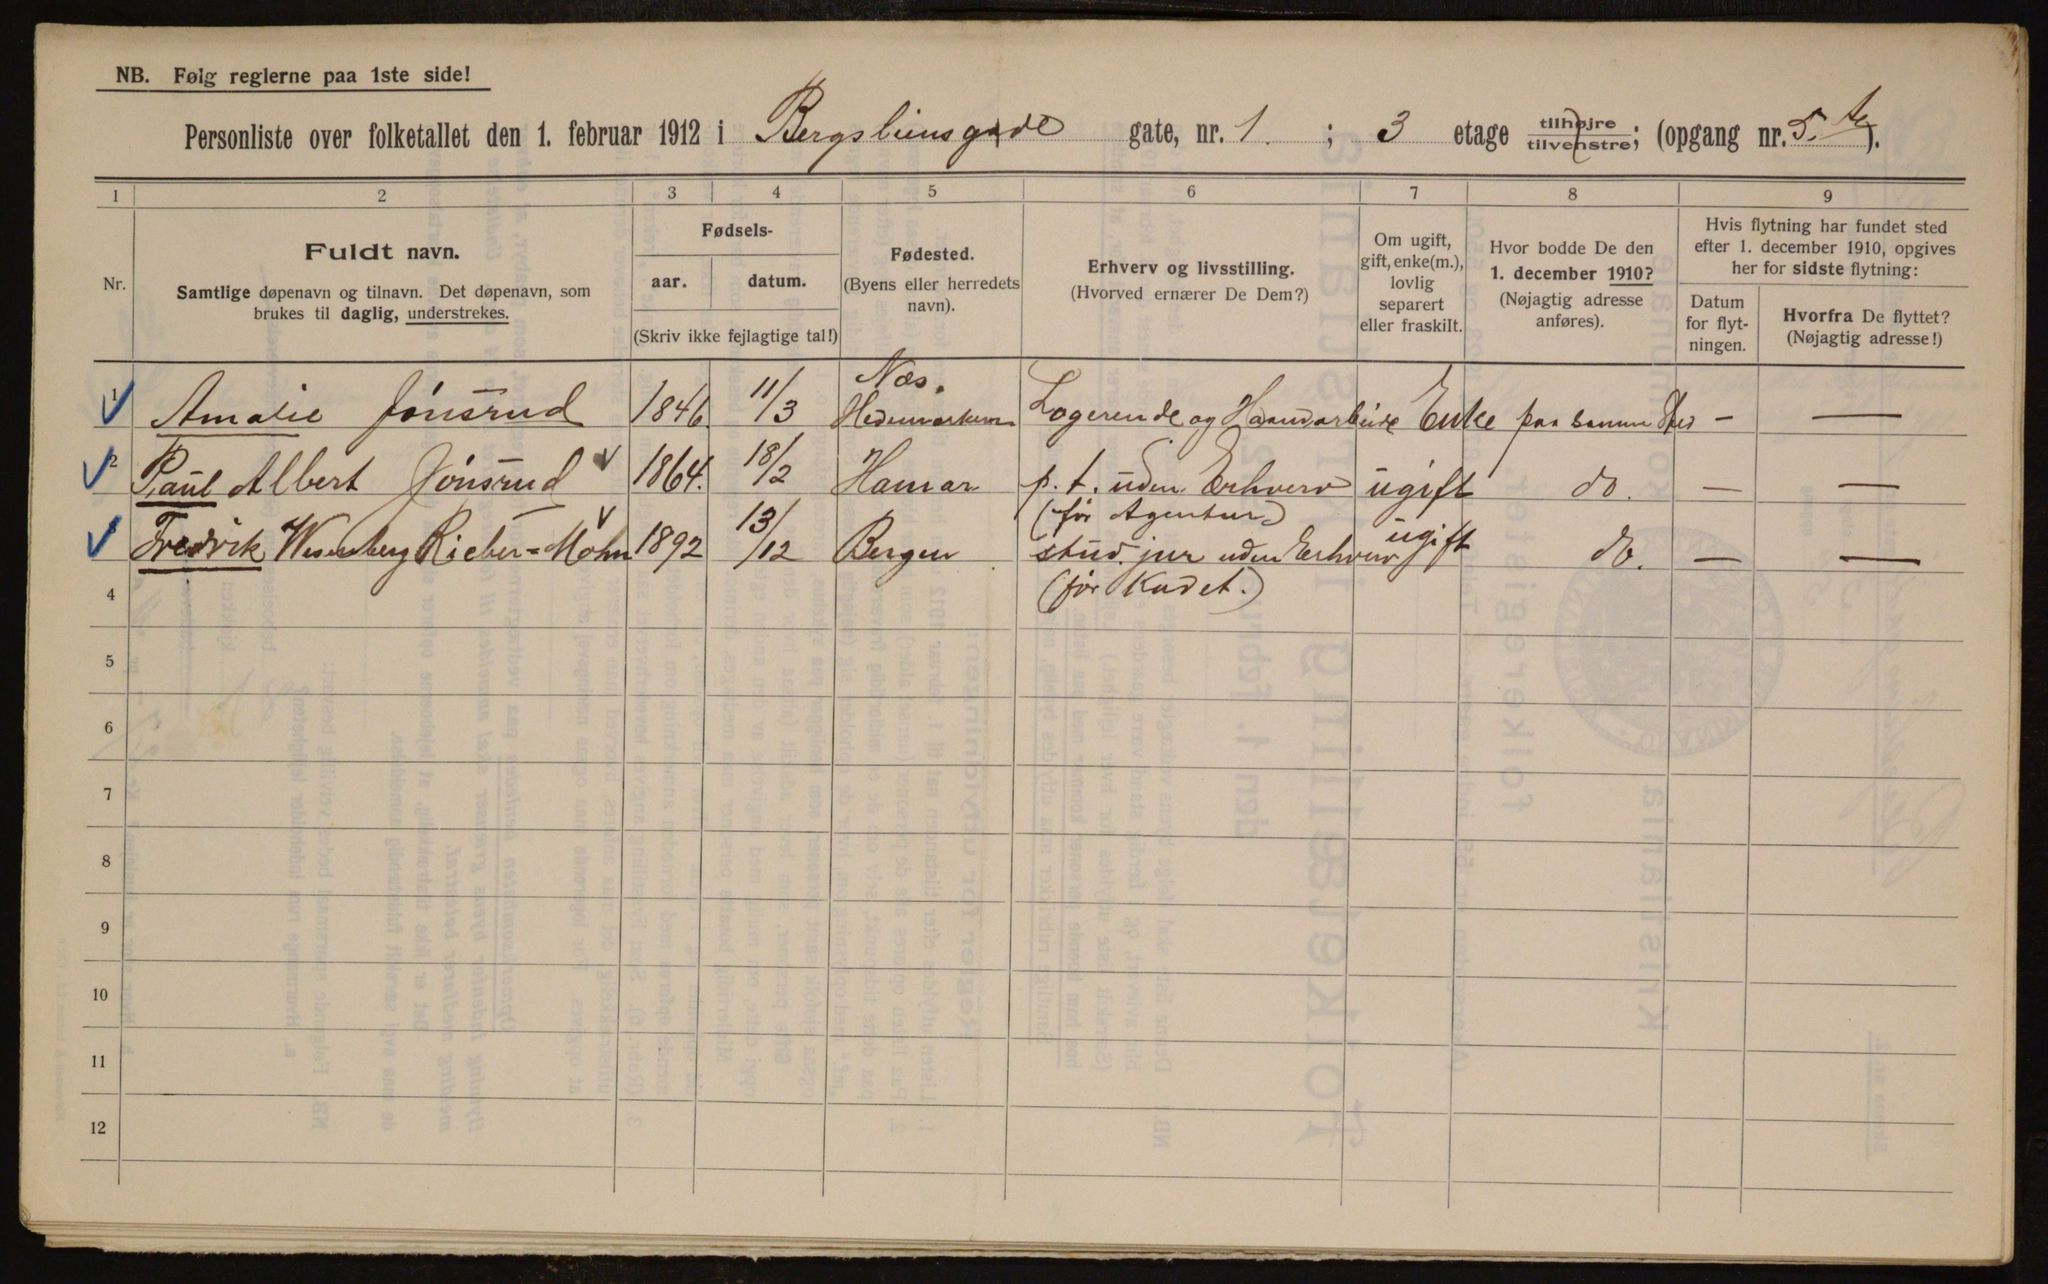 NB. Følg reglerne paa 1ste side!
Personliste over folketallet den 1. februar 1912 i Bergsliensgade gate, nr. 1. ; 3 etage tilhøjre tilvenstre; (opgang nr. 5. ).
1 2 3 4 5 6 7 8 9
Nr.
Fuldt navn.
Samtlige døpenavn og tilnavn. Det døpenavn, som
brukes til daglig, understrekes.
Fødsels-
aar. datum.
(Skriv ikke fejlagtige tal!)
Fødested.
(Byens eller herredets
navn).
Erhverv og livsstilling.
(Hvorved ernærer De Dem?)
Om ugift,
gift, enke(m.),
lovlig
separert
eller fraskilt.
Hvor bodde De den
1. december 1910?
(Nøjagtig adresse
anføres).
Hvis flytning har fundet sted
efter 1. december 1910, opgives
her for sidste flytning:
Datum
for flyt-
ningen.
Hvorfra De flyttet?
(Nøjagtig adresse!)
1 Amalie Jónsrud 1846 11/3 Næs. Hedemarken Logerende og Haandarbeide Enke paa samme Sted — —
2 Paul Albert Jónsrud 1864. 18/2 Hamar p. t. uden Erhverv (før Agentur) ugift do. — —
3 Fredrik Wesenberg Rieber-Mohn 1892 13/12 Bergen stud. jur uden Erhverv (før Kadet.) ugift do. — —
4
5
6
7
8
9
10
11
12